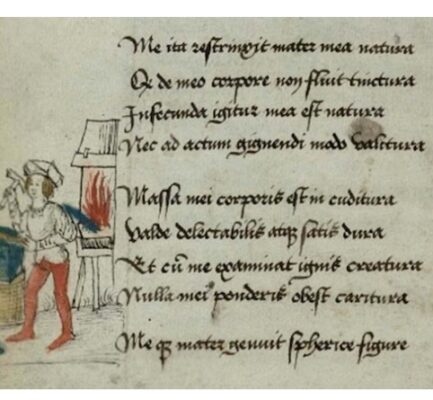 Me ita restrinxit mater mea natura
Qz de meo corpore non fluit tinctura
Infecunda igitur mea est natura
Nec ad actum gignendi modo valitura
Massa mei corporis est in cuditura
Valde delectabilis atqꝫ satis dura
Et cū me examinat ignis creatura
Nulla mei ponderis obest caritura
Me qꝫ mater genuit spherice figure